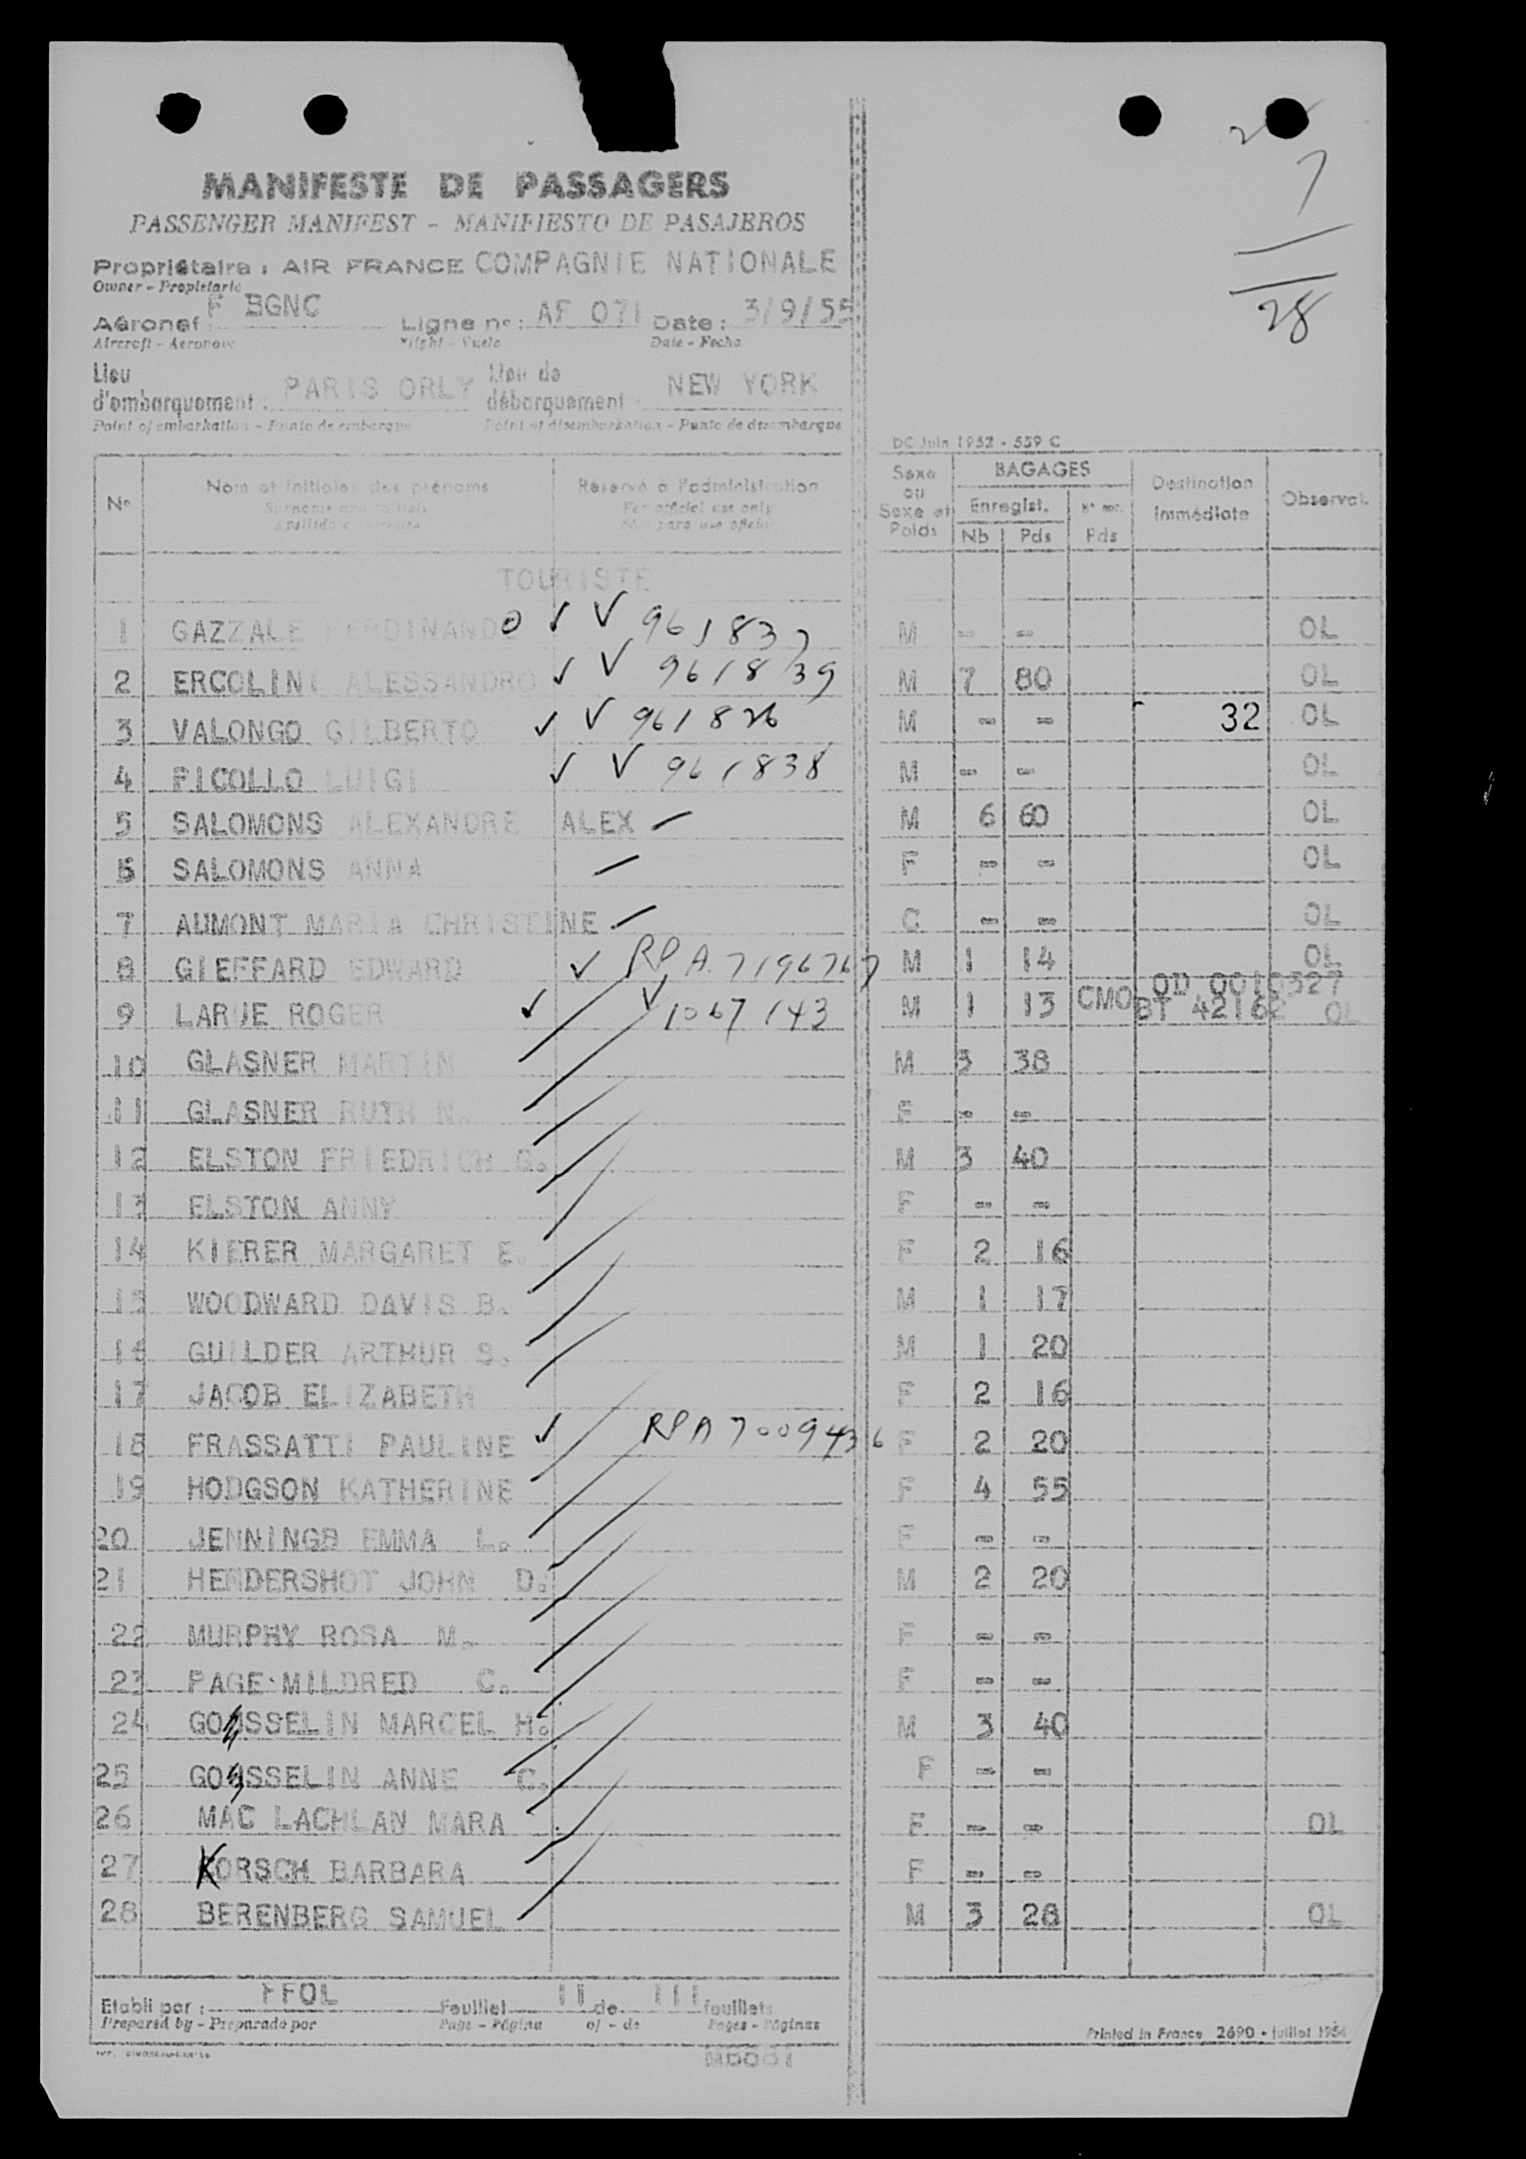 2
7
28
MANIFESTE DE PASSAGERS
PASSENGER MANIFEST - MANIFIESTO DE PASAJEROS
Propriétaire : AIR FRANCE COMPAGNIE NATIONALE
Owner - Propietario
Aéronef : F BGNC Ligne n° : AF 071 Date : 3/9/55
Aircraft - Aeronave Flight - Vuelo Date - Fecha
Lieu d'embarquement : PARIS ORLY Lieu de débarquement : NEW YORK
Point of embarkation - Punto de embarque Point of disembarkation - Punto de desembarque
DC Juin 1952 - 559 C
N° Nom et initiales des prénoms Réservé à l'administration Sexe ou Sexe et Poids BAGAGES Destination immédiate Observat.
Surname and initials For official use only Enregist.
Apellido Nb Pds Pds
TOURISTE
1 GAZZALE FERDINANDO ✓ V 961837 M - - OL
2 ERCOLINI ALESSANDRO ✓ V 961839 M 7 80 OL
3 VALONGO GILBERTO ✓ V 961826 M - - 32 OL
4 PICOLLO LUIGI ✓ V 961838 M - - OL
5 SALOMONS ALEXANDRE ALEX M 6 60 OL
6 SALOMONS ANNA F - - OL
7 AUMONT MARIA CHRISTINE C - - OL
8 GIEFFARD EDWARD ✓ RPA 7196767 M 1 14 OL
OD 0010327
9 LARUE ROGER ✓ V 1067143 M 1 13 CMO BT 42162 OL
10 GLASNER MARTIN M 3 38
11 GLASNER RUTH N. F - -
12 ELSTON FRIEDRICH G. M 3 40
13 ELSTON ANNY F - -
14 KIERER MARGARET E. F 2 16
15 WOODWARD DAVIS B. M 1 17
16 GUILDER ARTHUR S. M 1 20
17 JACOB ELIZABETH F 2 16
18 FRASSATTI PAULINE ✓ RPA 7009436 F 2 20
19 HODGSON KATHERINE F 4 55
20 JENNINGS EMMA L. F - -
21 HENDERSHOT JOHN D. M 2 20
22 MURPHY ROSA M. F - -
23 PAGE MILDRED C. F - -
24 GOSSELIN MARCEL H. M 3 40
25 GOSSELIN ANNE C. F - -
26 MAC LACHLAN MARA F - - OL
27 KORSCH BARBARA F - -
28 BERENBERG SAMUEL M 3 28 OL
Etabli par : FFOL Feuillet II de III feuillets
Prepared by - Preparado por Page - Página of - de Pages - Páginas
Printed in France 2690 - juillet 1954